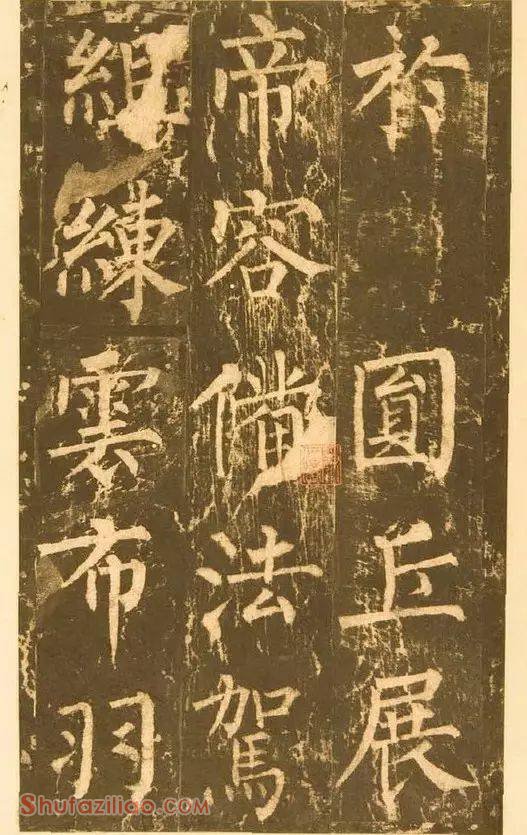 於圓丘展
帝容備法駕
組練雲布羽
Shufaziliao.COM